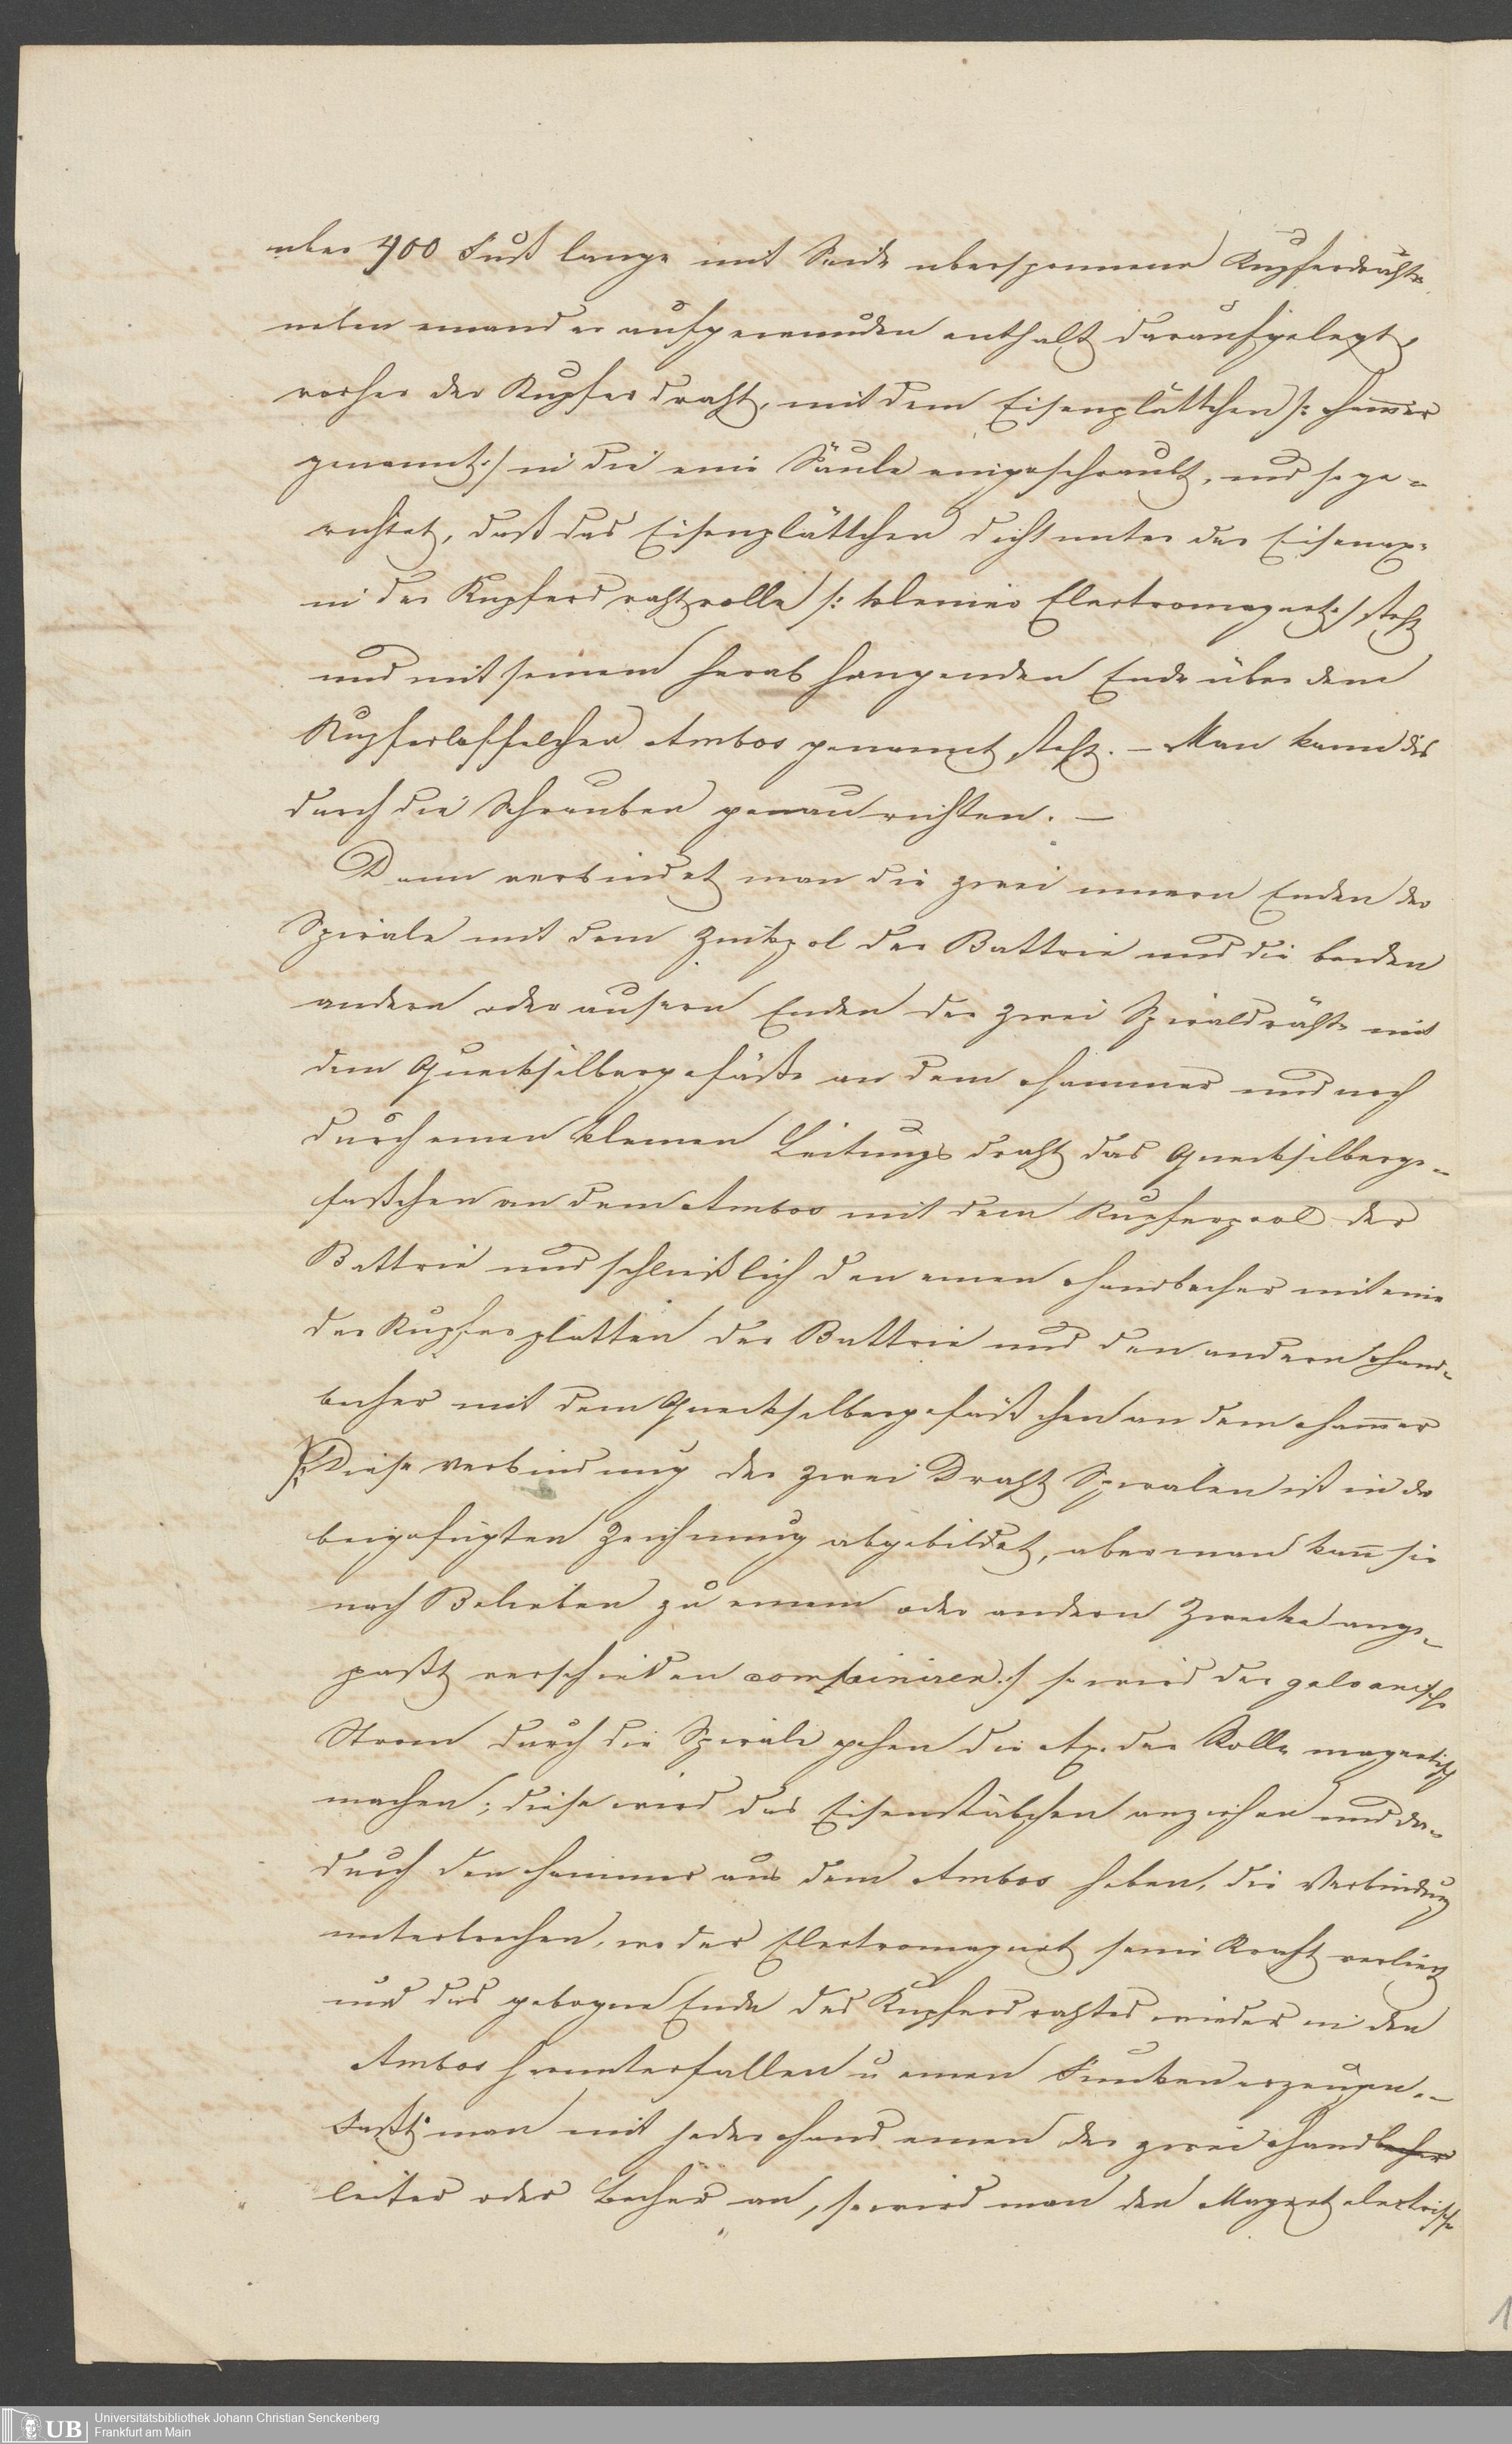 uber 400 Fuß lange mit Seide ubersponnene Kupferdrähte
neben einander aufgewunden enthält daraufgelegt,
vorher der Kupferdraht, mit dem Eisenplättchen /: Ham̄er
genannt :/ in die eine Säule eingeschraubt, und so ge-
richtet, daß das Eisenplättchen dicht unter der Eisenax-
in der Kupferdrahtrolle /: kleiner Electromagnet :/ steht
und mit seinem herab hangenden Ende über dem
Kupferloffelchen Ambos genannt steht. – Man kann dies
durch die Schrauben genau richten. –
Dann verbindet man die zwei innern Enden der
Spirale mit dem Zinkpol der Battrie und die beiden
andern oder ausern Enden der zwei Spiraldrähte mit
dem Quecksilbergefäße an dem Hammer und noch
durch einen kleinen Leitungsdraht das Quecksilberge-
faßchen an dem Ambos mit dem Kupferpool der
Battrie und schließlich den einen Handbecher mit eine
der Kupferplatten der Battrie und den andern Hand-
becher mit dem Quecksilbergefäßchen an dem Ham̄er
/: Diese Verbindung der zwei Draht Spiralen ist in der
beigefugten Zeichnung abgebildet, aber man kan̄ sie
nach Belieben zu einem oder andern Zwecke ange-
paßt verschieden combiniren :/ so wird der galvanische
Strom durch die Spirale gehen die Ax. der Rolle magnetisch
machen; diese wird das Eisenstäbchen anziehen und da-
durch den Hammer aus dem Ambos heben, die Verbindung
unterbrechen, wo der Electromagnet seine Kraft verliert
und das gebogene Ende des Kupferdrahtes wieder in den
Ambos herunterfallen u einen Funken erzeugen. –
Faßt man mit jeder Hand einen der zwei Handbecher
leiter oder Becher an, so wird man den Magnet electrische
1
UB Universitätsbibliothek Johann Christian Senckenberg
Frankfurt am Main